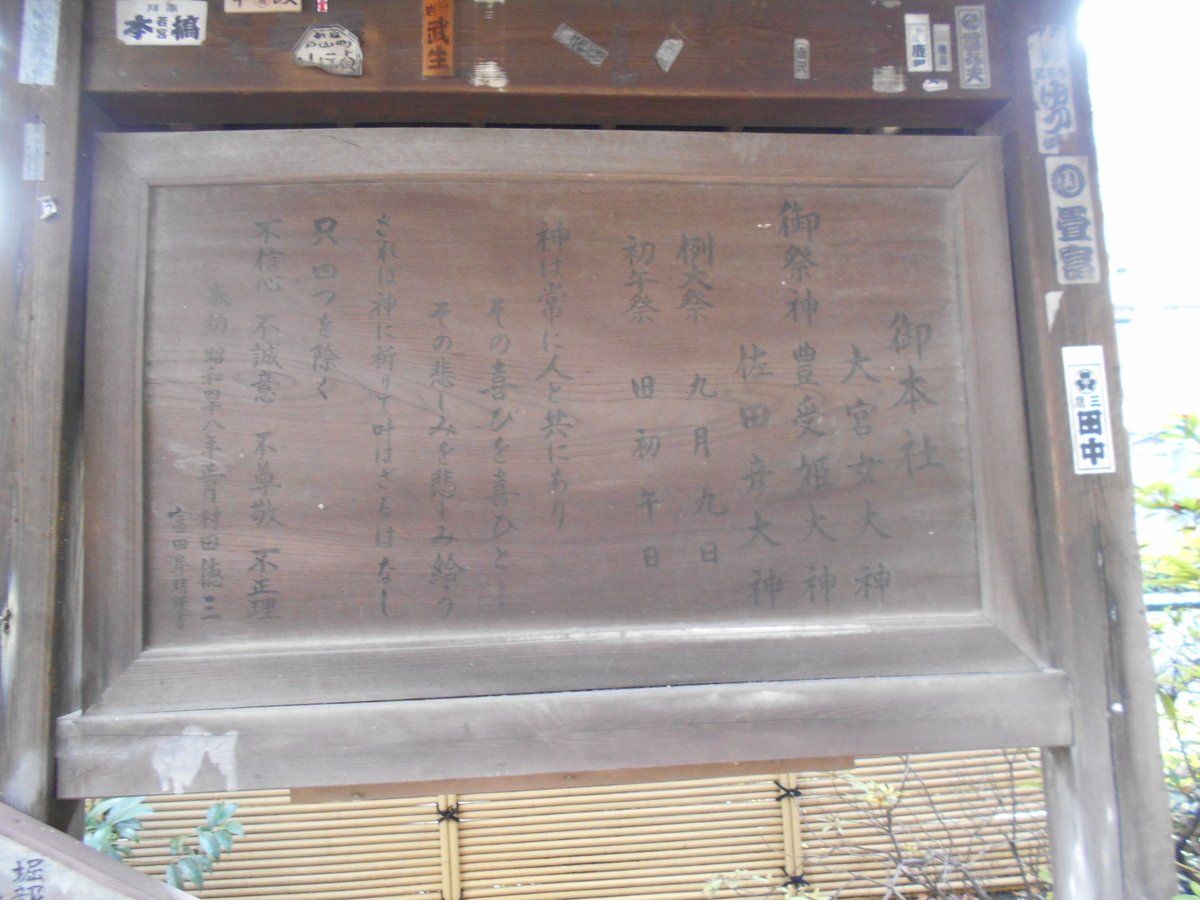 御本社
大宮女大神
御祭神 豊受姫大神
佐田彦大神
例大祭 九月九日
初午祭 旧初午日
神は常に人と共にあり
その喜びを喜びとし
その悲しみを悲しみ給う
されば神に祈りて叶はざるはなし
只四つを除く
不信心 不誠意 不尊敬 不正理
奉納 昭和四十八年 月 村田徳三
本橋
武生
畳富
田中
堀部